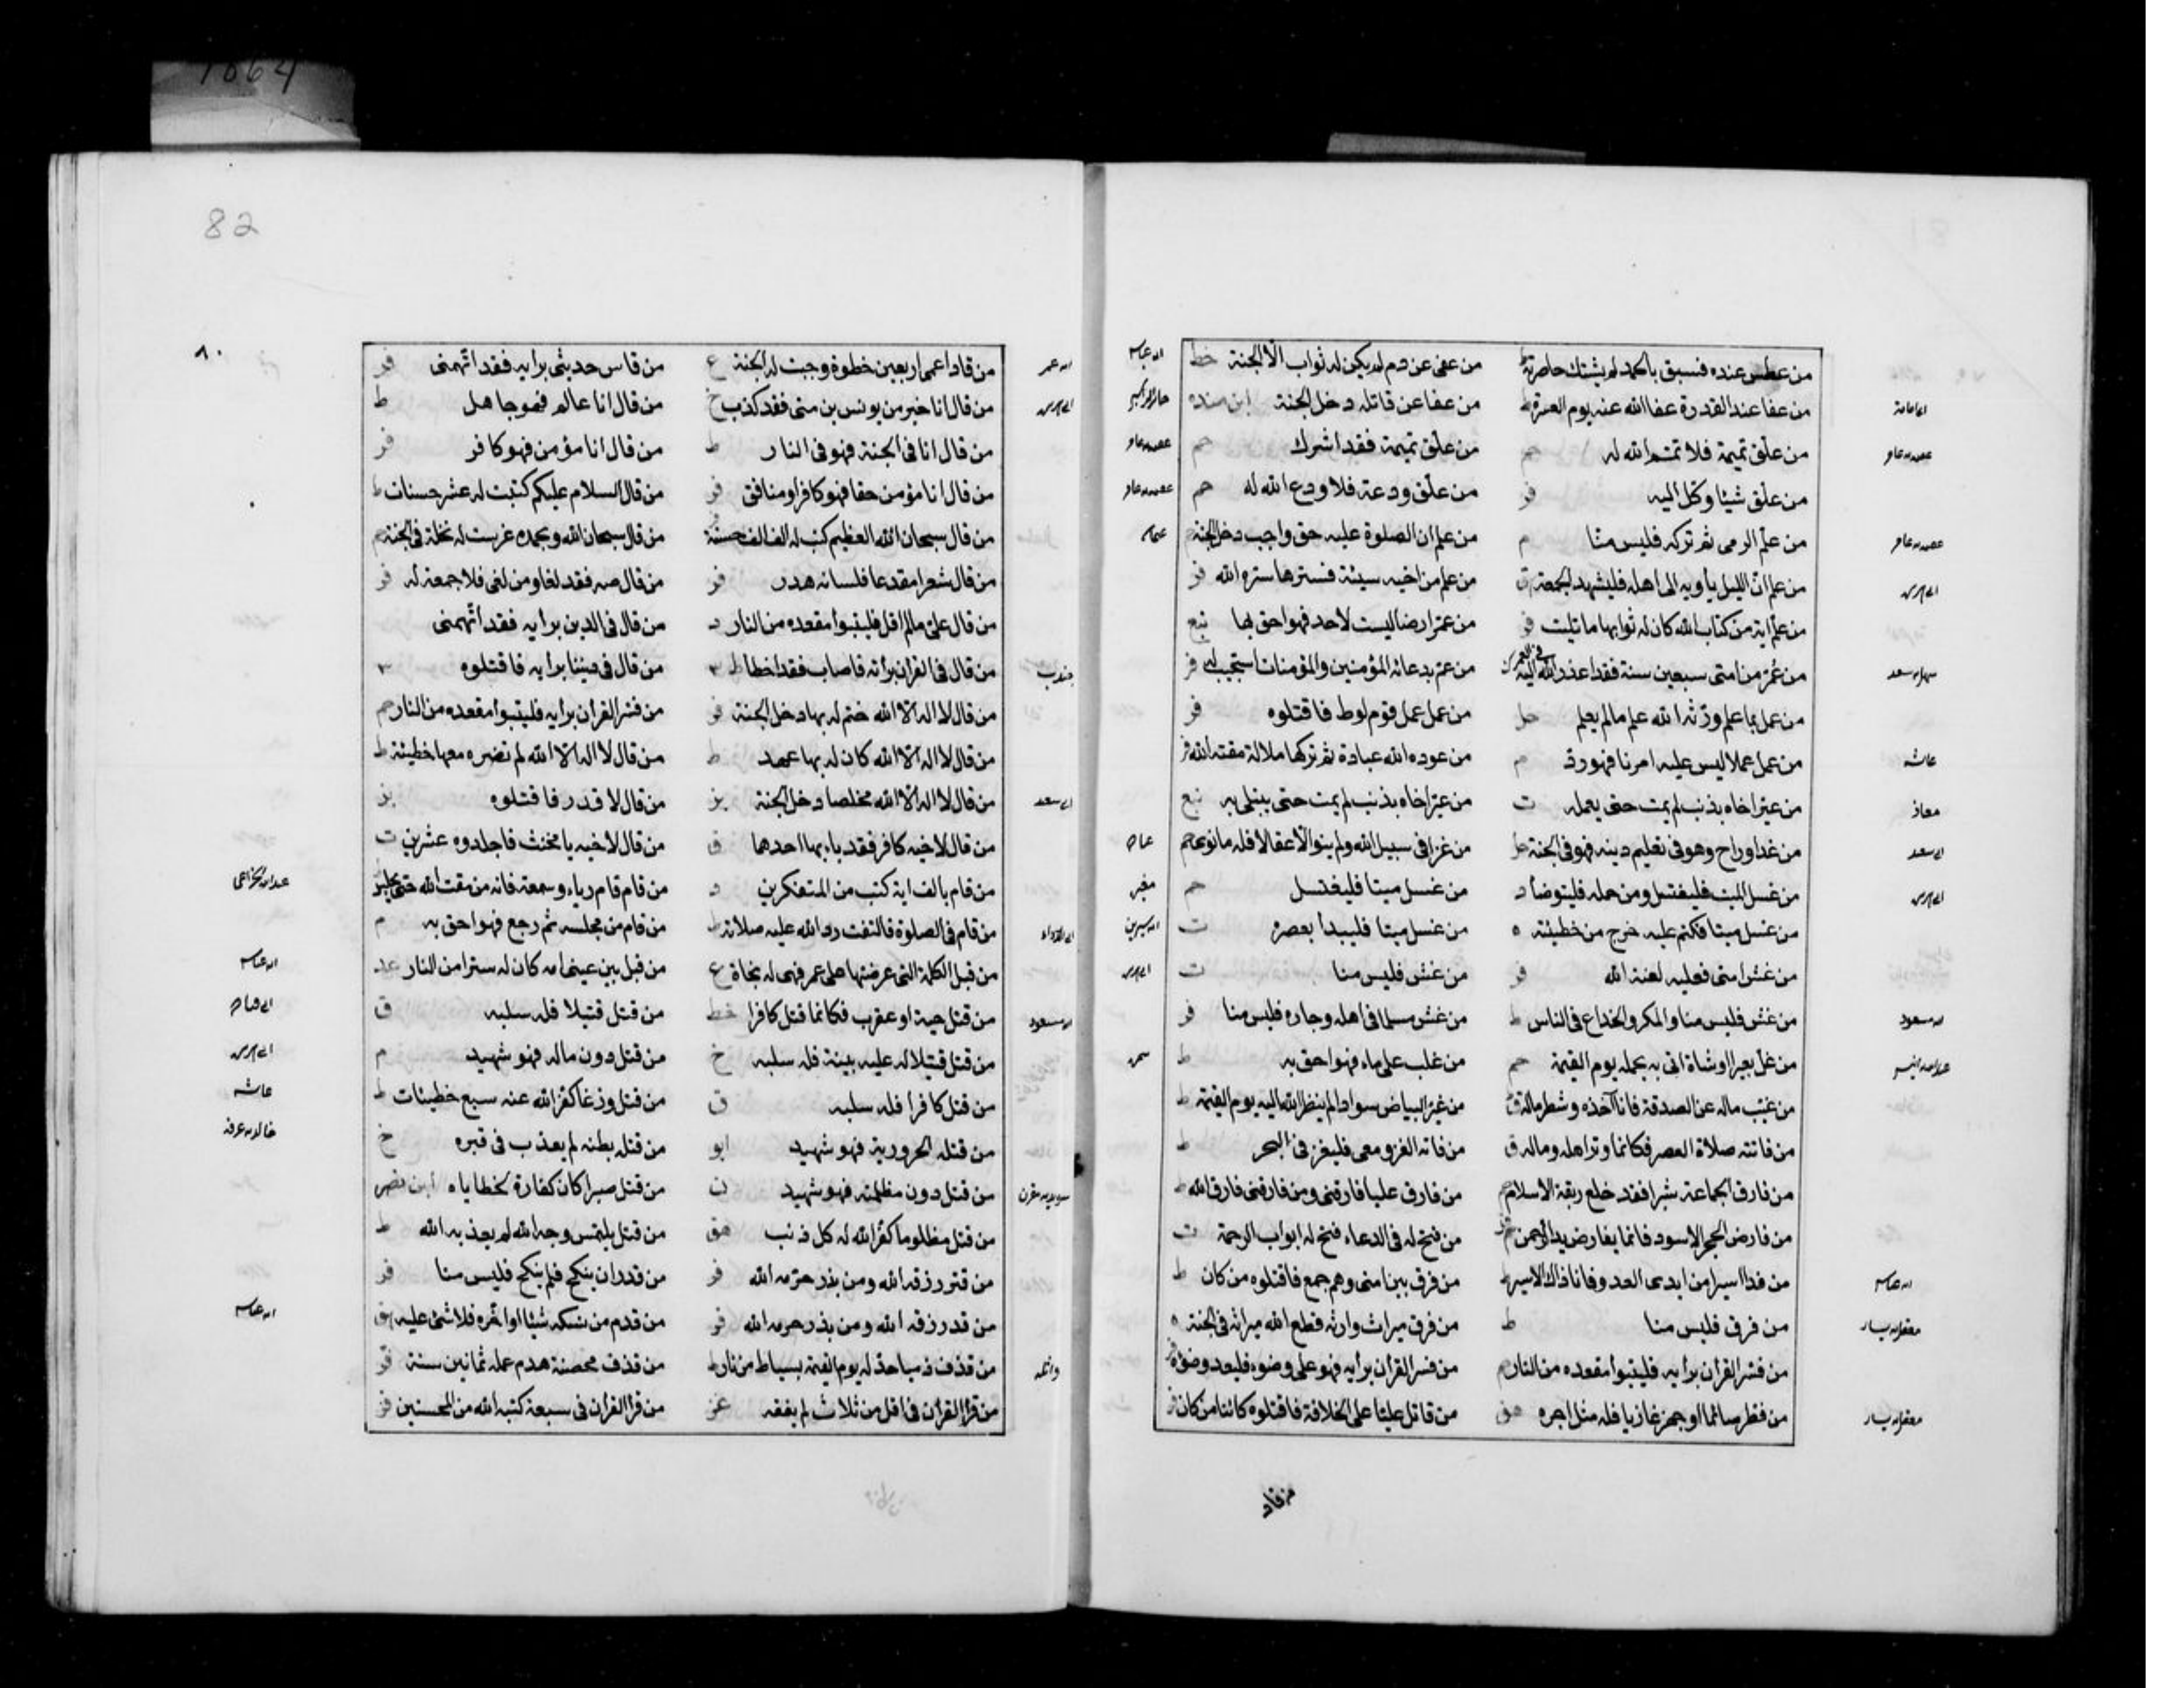 من عطس عنده فسبق بالحمد لم يشتك خاصرته ط
من عفى عن دم لم يكن له ثواب الا الجنة خط
من عفا عند القدرة عفا الله عنه يوم العسرة ط
من عفا عن قاتله دخل الجنة ابن منده
من علق تميمة فلا تمم الله له حم
من علق تميمة فقد اشرك حم
من علق شيئا وكل اليه فر
من علق ودعة فلا ودع الله له حم
من علم الرمى ثم تركه فليس منا م
من علم ان الصلوة عليه حق واجب دخل الجنة حم
من علم ان الليل يأويه الى اهله فليشهد الجمعة ق
من علم من اخيه سيئة فسترها ستره الله فر
من علم اية من كتاب الله كان له ثوابها ما تليت فر
من عمر ارضا ليست لاحد فهو احق بها
من عمر من امتى سبعين سنة فقد اعذر الله اليه فى العمر ك
من عم بدعائه المؤمنين والمؤمنات استجيب له فر
من عمل بما علم ورثه الله علم ما لم يعلم حل
من عمل عمل قوم لوط فاقتلوه فر
من عمل عملا ليس عليه امرنا فهو رد م
من عوده الله عبادة ثم تركها ملالة مقته الله فر
من عير اخاه بذنب لم يمت حتى يعمله ت
من عير اخاه بذنب لم يمت حتى يبتلى به
من غدا وراح وهو فى تعليم دينه فهو فى الجنة حل
من غزا فى سبيل الله ولم ينو الا عقالا فله ما نوى حم
من غسل الميت فليغتسل ومن حمله فليتوضأ د
من غسل ميتا فليغتسل حم
من غسل ميتا فكتم عليه خرج من خطيئته ه
من غسل ميتا فليبدأ بعصره ت
من غش امتى فعليه لعنة الله فر
من غش فليس منا ت
من غش فليس منا والمكر والخداع فى الناس ط
من غش مسلما فى اهله وجاره فليس منا فر
من غل بعيرا او شاة اتى به يحمله يوم القيمة حم
من غلب على ماء فهو احق به ط
من غيب ماله عن الصدقة فانا آخذه وشطر ماله ق
من غير البياض سوادا لم ينظر الله اليه يوم القيمة ط
من فاتته صلاة العصر فكانما وتر اهله وماله ق
من فاته الغزو معى فليغز فى البحر ط
من فارق الجماعة شبرا فقد خلع ربقة الاسلام حم
من فارق عليا فارقنى ومن فارقنى فارق الله ط
من فارض الحجر الاسود فانما يفارض يد الرحمن
من فتح له فى الدعاء فتح له ابواب الرحمة ت
من فدا اسيرا من ايدى العدو فانا ذاك الاسير ط
من فرق بين امتى وهم جمع فاقتلوه من كان ط
من فرق فليس منا ط
من فرق ميراث وارثه قطع الله ميراثه فى الجنة ه
من فسر القرآن برايه فليتبوأ مقعده من النار حم
من فسر القرآن برايه فهو على وضوء فليعد وضوءه فر
من فطر صائما او جهز غازيا فله مثل اجره هق
من قاتل عليا على الخلافة فاقتلوه كائنا من كان فر
من قاد
82
٨٠
من قاد اعمى اربعين خطوة وجبت له الجنة ع
من قاس حديثى برايه فقد اتهمنى فر
من قال انا خير من يونس بن متى فقد كذب خ
من قال انا عالم فهو جاهل ط
من قال انا فى الجنة فهو فى النار ط
من قال انا مؤمن فهو كافر فر
من قال انا مؤمن حقا فهو كافر او منافق فر
من قال السلام عليكم كتبت له عشر حسنات ط
من قال سبحان الله العظيم كتب له الف الف حسنة فر
من قال سبحان الله وبحمده غرست له نخلة فى الجنة
من قال شعرا مقدعا فلسانه هدر فر
من قال صه فقد لغا ومن لغى فلا جمعة له فر
من قال على ما لم اقل فليتبوأ مقعده من النار د
من قال فى الدين برايه فقد اتهمنى
من قال فى القرآن برأيه فاصاب فقد اخطا ط ٣
من قال فى ديننا برايه فاقتلوه ٣
من قال لا اله الا الله ختم له بها دخل الجنة فر
من فسر القرآن برايه فليتبوأ مقعده من النار حم
من قال لا اله الا الله كان له بها عهد ط
من قال لا اله الا الله لم تضره معها خطيئة ط
من قال لا اله الا الله مخلصا دخل الجنة بز
من قال لا قدر فاقتلوه بز
من قال لاخيه كافر فقد باء بها احدهما ق
من قال لاخيه يا مخنث فاجلدوه عشرين ت
من قام بالف اية كتب من المتفكرين د
من قام قام رياء وسمعة فانه من مقت الله حتى يجلس
من قام فى الصلوة فالتفت رد الله عليه صلاته ط
من قام من مجلسه ثم رجع فهو احق به م
من قبل الكلمة التى عرضتها على عمر فهى له نجاة ع
من قبل بين عينى امه كان له سترا من النار عد
من قتل حية او عقرب فكانما قتل كافرا خط
من قتل قتيلا فله سلبه ق
من قتل قتيلا له عليه بينة فله سلبه خ
من قتل دون ماله فهو شهيد م
من قتل كافرا فله سلبه ق
من قتل وزغا كفر الله عنه سبع خطيئات ط
من قتله الحرورية فهو شهيد ابو
من قتله بطنه لم يعذب فى قبره خ
من قتل دون مظلمته فهو شهيد ن
من قتل صبرا كان كفارة لخطاياه ابن نصر
من قتل مظلوما كفر الله له كل ذنب هق
من قتل يلتمس وجه الله لم يعذبه الله ط
من قتر رزقه الله ومن بذر حرمه الله فر
من قدر ان ينكح فلم ينكح فليس منا فر
من قدر رزقه الله ومن بذر حرمه الله فر
من قدم من نسكه شيئا او اخره فلا شئ عليه هق
من قذف ذميا حد له يوم القيمة بسياط من نار ط
من قذف محصنة هدم عمله ثمانين سنة فر
من قرا القرآن فى اقل من ثلاث لم يفقه
من قرا القرآن فى سبعة كتبه الله من المحسنين فر